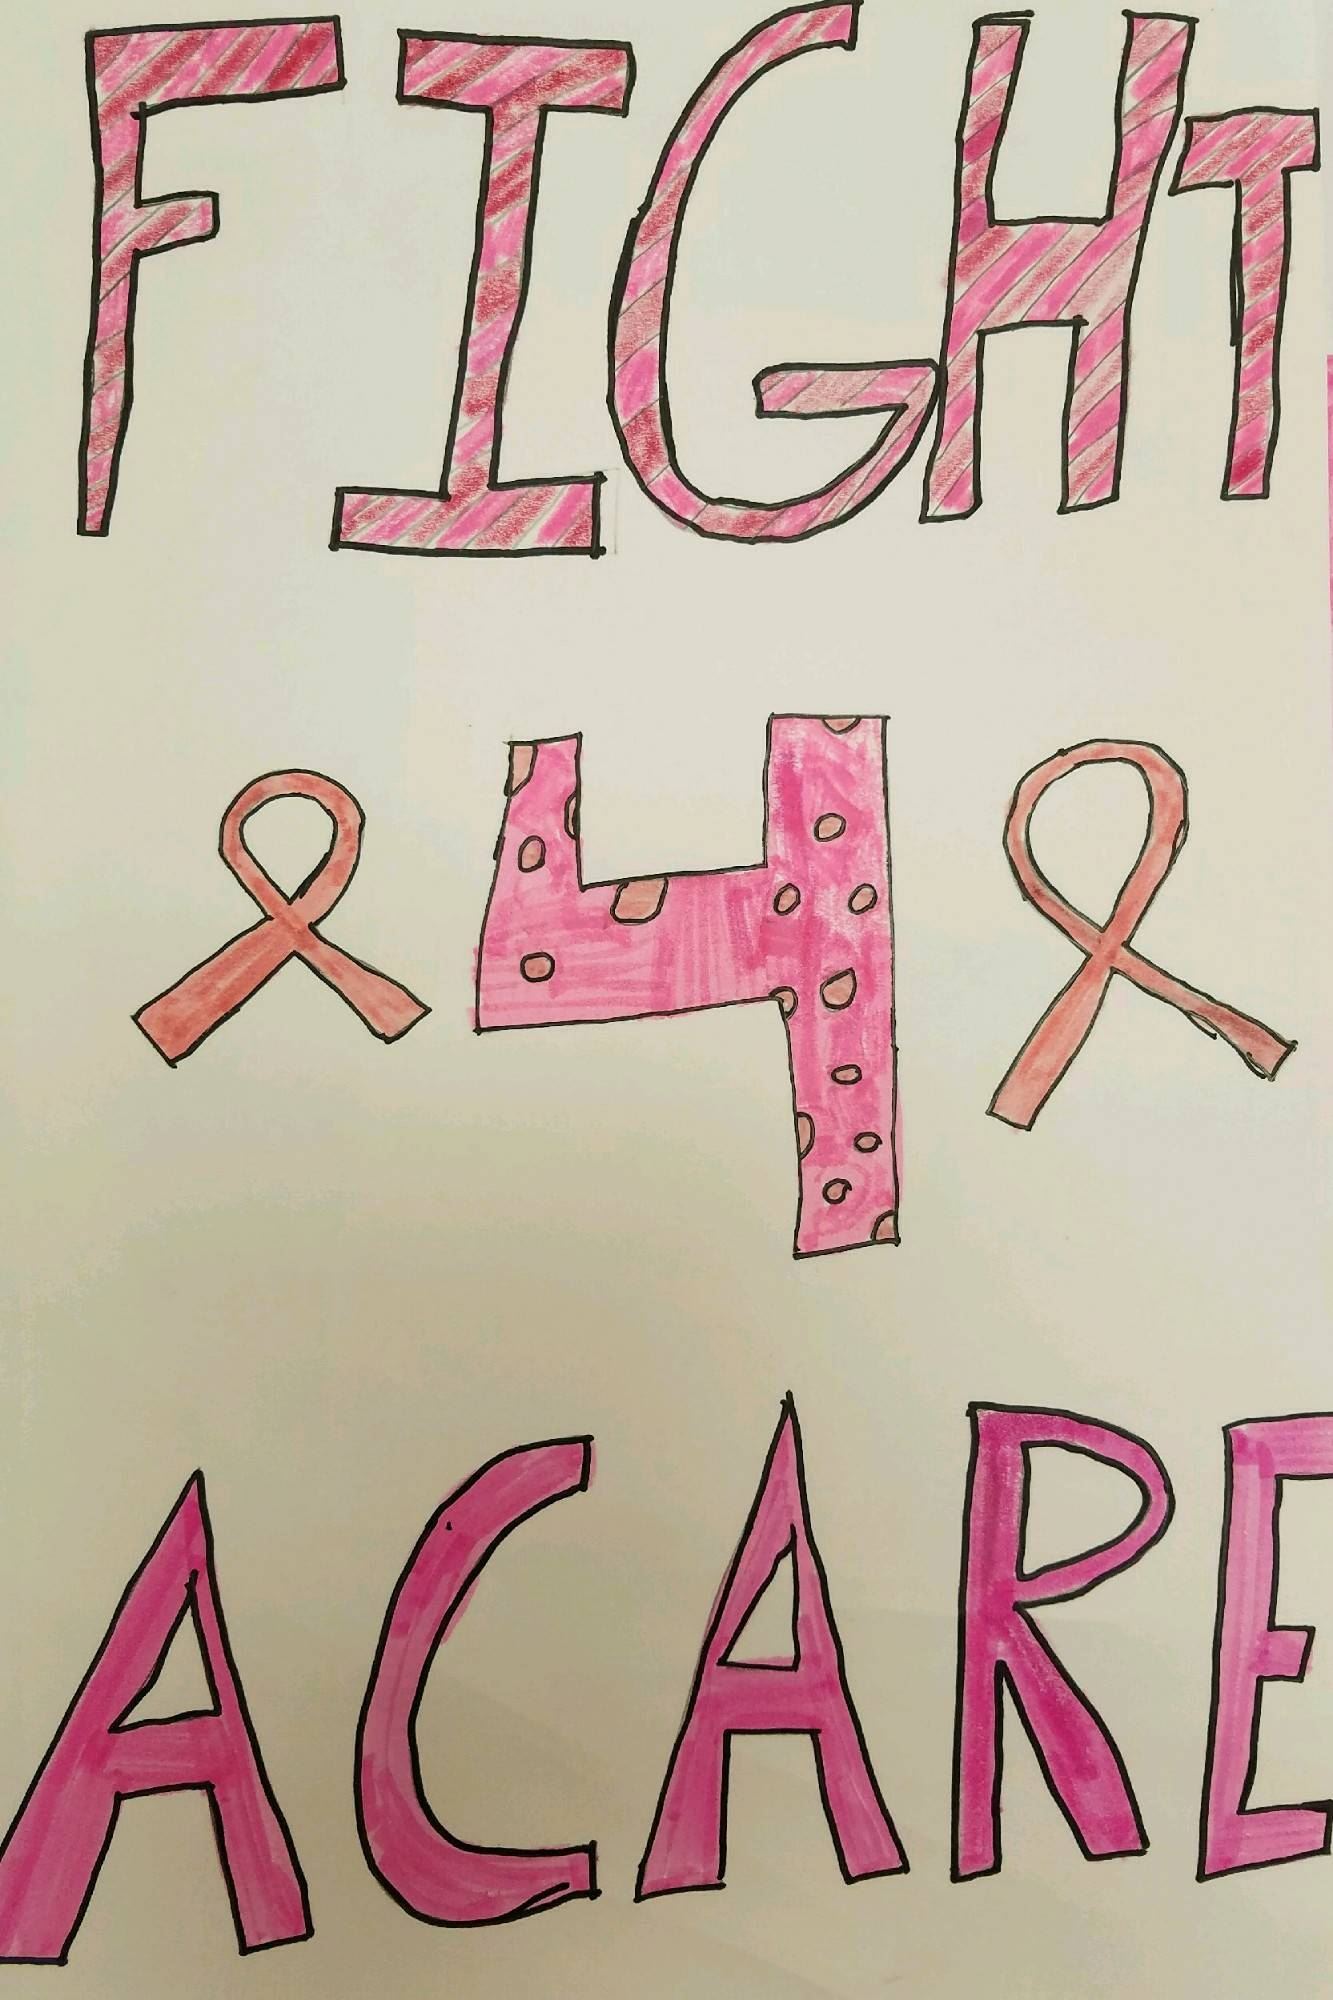 FIGHT
4
ACARE